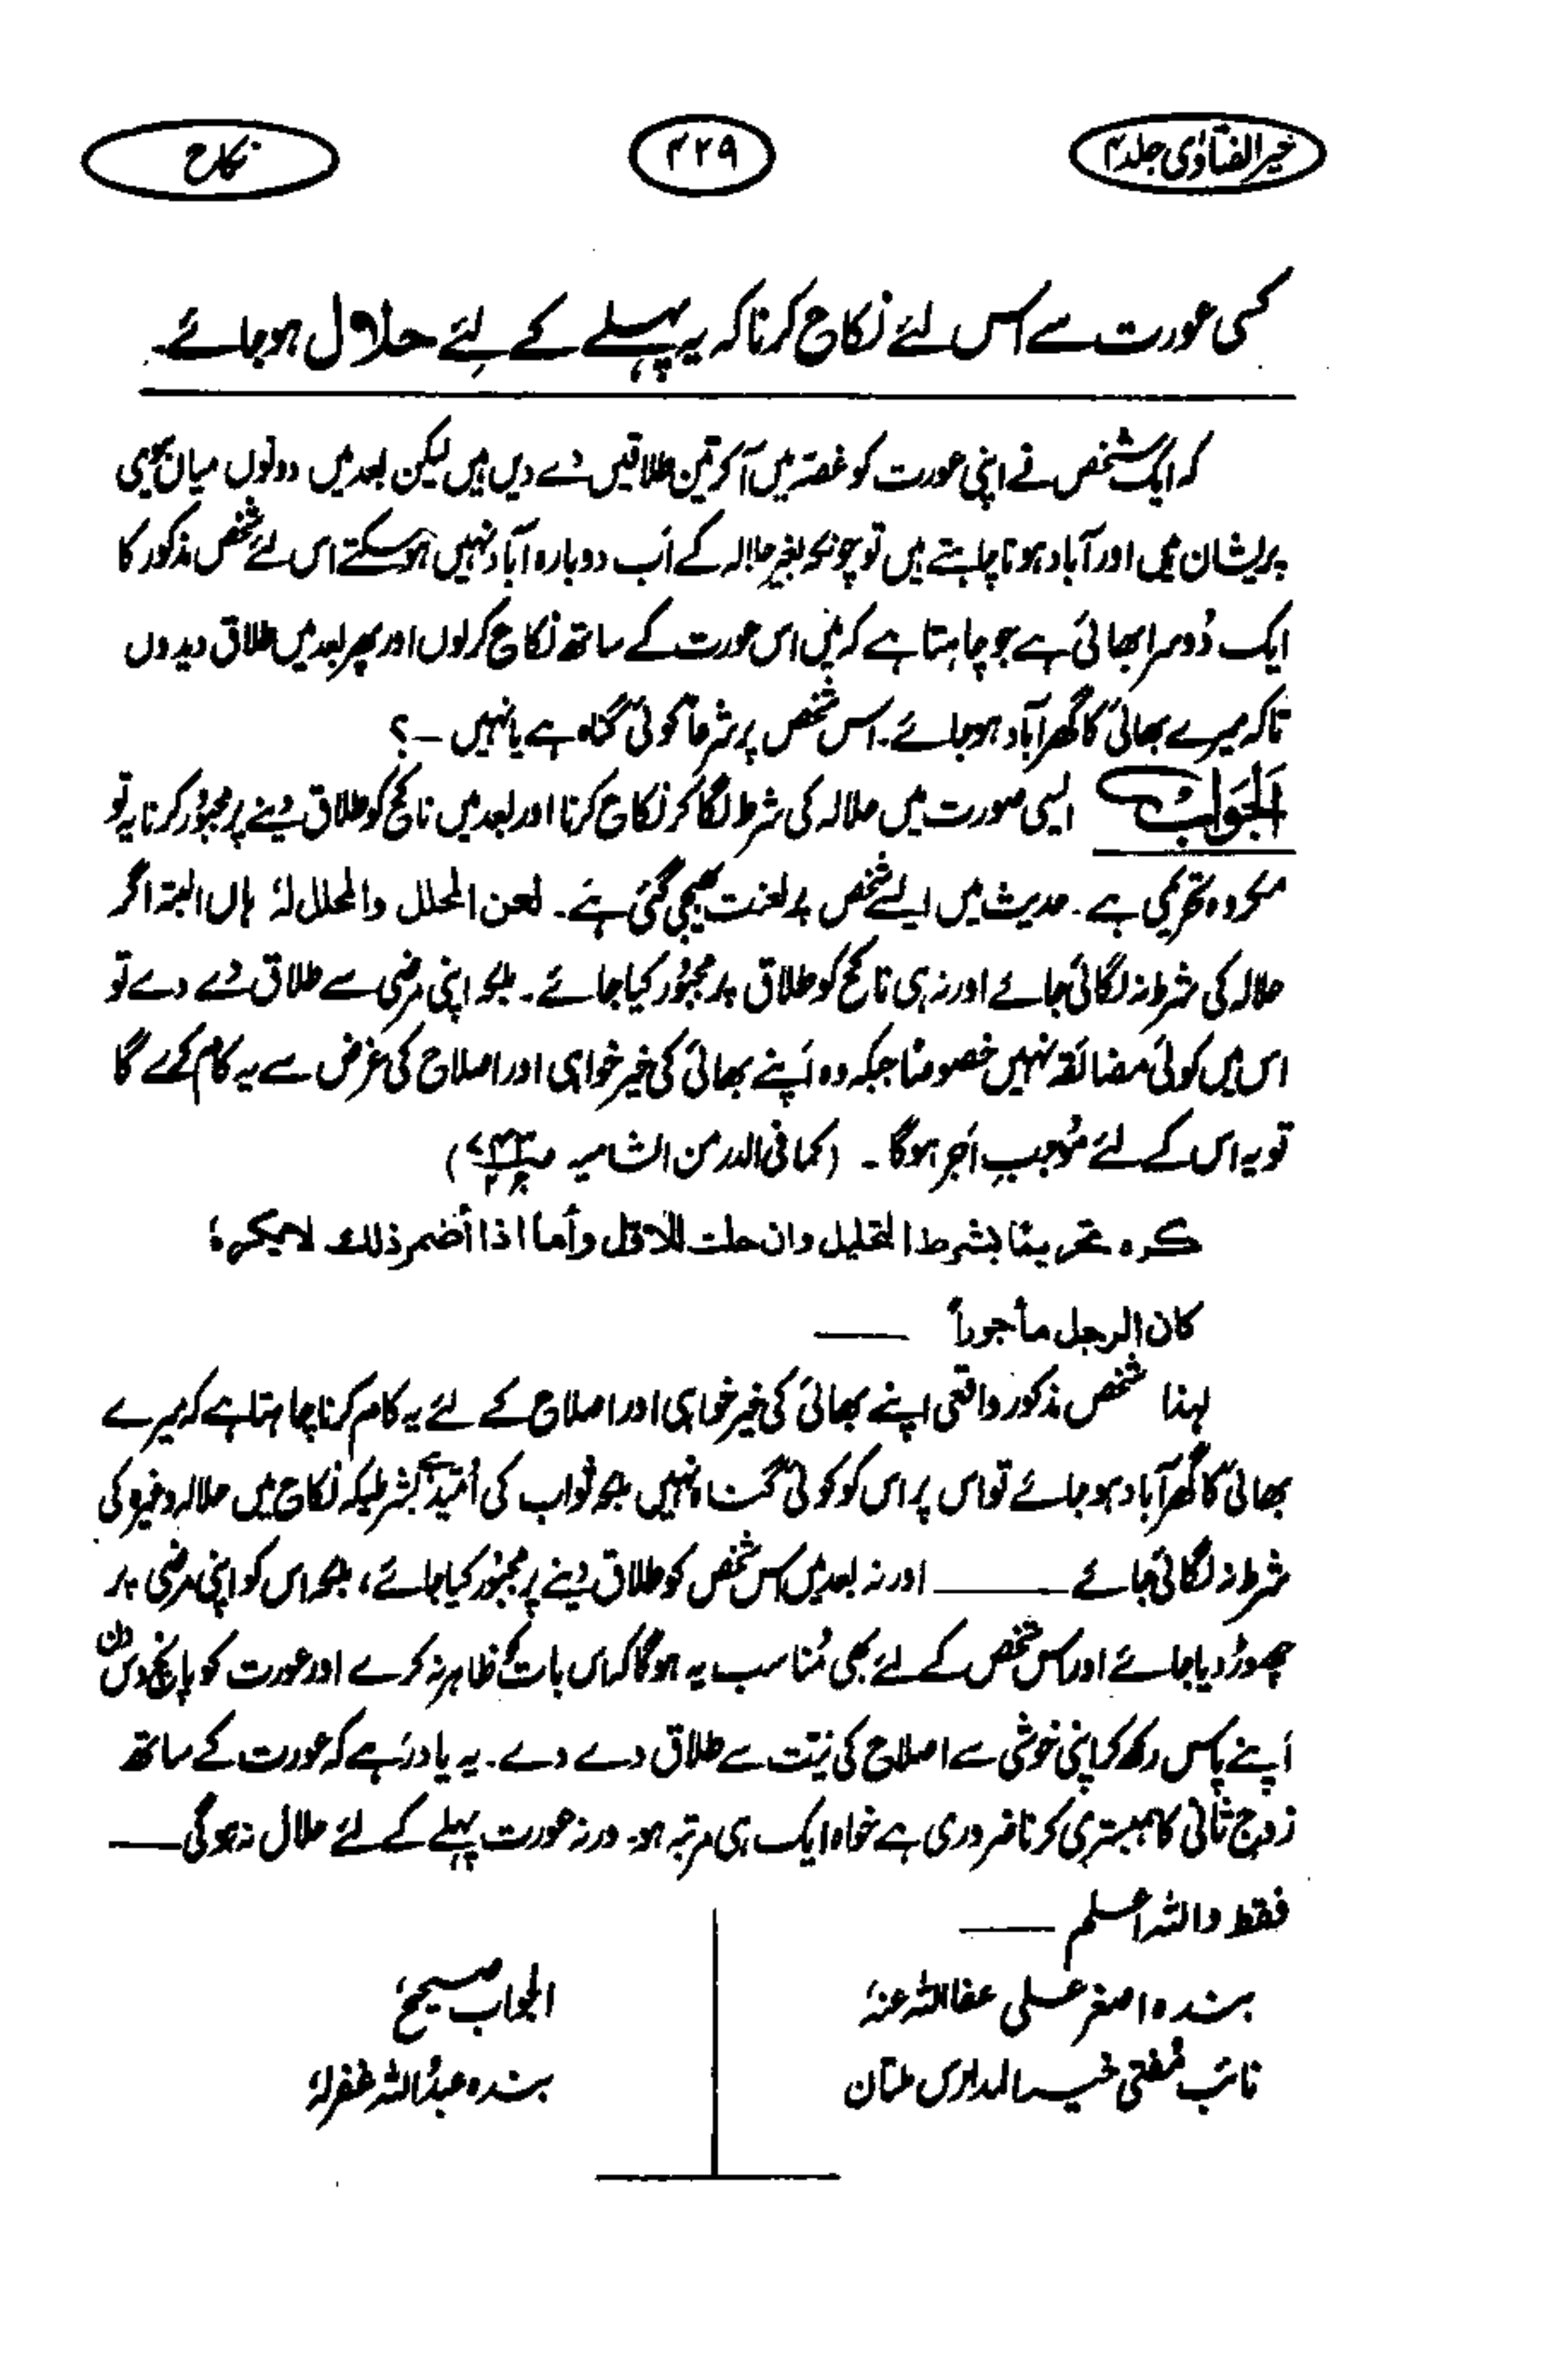 خیر الفتاوٰی جلد ۴
۲۲۹
نکاح
کسی عورت سے اس لئے نکاح کرنا کہ یہ پہلے کے لِئے حلال ہوجائے۔
کہ ایک شخص نے اپنی عورت کو غصّہ میں آکر تین طلاقیں دے دیں ہیں لیکن بعد میں دونوں میاں بیوی
پریشان ہیں اور آباد ہونا چاہتے ہیں تو چونکہ بغیر حلالہ کے اَب دوبارہ آباد نہیں ہو سکتے اس لئے شخص مذکور کا
ایک دُوسرا بھائی ہے جو چاہتا ہے کہ میں اس عورت کے ساتھ نکاح کرلوں اور پھر بعد میں طلاق دیدوں
تاکہ میرے بھائی کا گھر آباد ہوجائے۔ اس شخص پر شرعاً کوئی گناہ ہے یا نہیں ۔؟
اَلجَوَابُ ایسی صورت میں حلالہ کی شرط لگا کر نکاح کرنا اور بعد میں ناکح کو طلاق دینے پر مجبُور کرنا یہ تو
مکروہ تحریمی ہے۔ حدیث میں ایسے شخص پر لعنت بھیجی گئی ہے۔ لعن المحلل والمحلل لہٗ ہاں البتہ اگر
حلالہ کی شرط نہ لگائی جائے اور نہ ہی ناکح کو طلاق پر مجبُور کیا جائے۔ بلکہ اپنی مرضی سے طلاق دے دے تو
اس میں کوئی مضائقہ نہیں خصوصًا جبکہ وہ اَپنے بھائی کی خیر خواہی اور اصلاح کی غرض سے یہ کام کرے گا
تو یہ اس کے لئے مُوجبِ اَجر ہوگا ۔ (کما فی الدر من الشامیہ
کرہ تحریمًا بشرط التحلیل وان حلت للاوّل وأما اذا أضمر ذلك لا یکرہ؛
کان الرجل مأجوراً ———
لہذا شخص مذکور واقعی اپنے بھائی کی خیر خواہی اور اصلاح کے لئے یہ کام کرنا چاہتا ہے کہ میرے
بھائی کا گھر آباد ہوجائے تو اس پر اس کو کوئی گناہ نہیں بلکہ ثواب کی اُمّید ہے بشرطیکہ نکاح میں حلالہ وغیرہ کی
شرط نہ لگائی جائے ——— اور نہ بعد میں اس شخص کو طلاق دینے پر مجبُور کیا جائے، بلکہ اس کو اپنی مرضی پر
چھوڑ دیا جائے اور اس شخص کے لئے بھی مُناسب یہ ہوگا کہ اس بات کو ظاہر نہ کرے اور عورت کو پانچ دس دن
اَپنے پاس رکھ کر اپنی خوشی سے اصلاح کی نیّت سے طلاق دے دے۔ یہ یاد رہے کہ عورت کے ساتھ
زوج ثانی کا ہمبستری کرنا ضروری ہے خواہ ایک ہی مرتبہ ہو۔ ورنہ عورت پہلے کے لئے حلال نہ ہوگی ——
فقط واللہ اعلم ———
بندہ اصغر علی عفا اللہ عنہٗ
نائب مُفتی خیر المدارس ملتان
الجواب صحیح
بندہ عبدُ اللہ غفرلہٗ